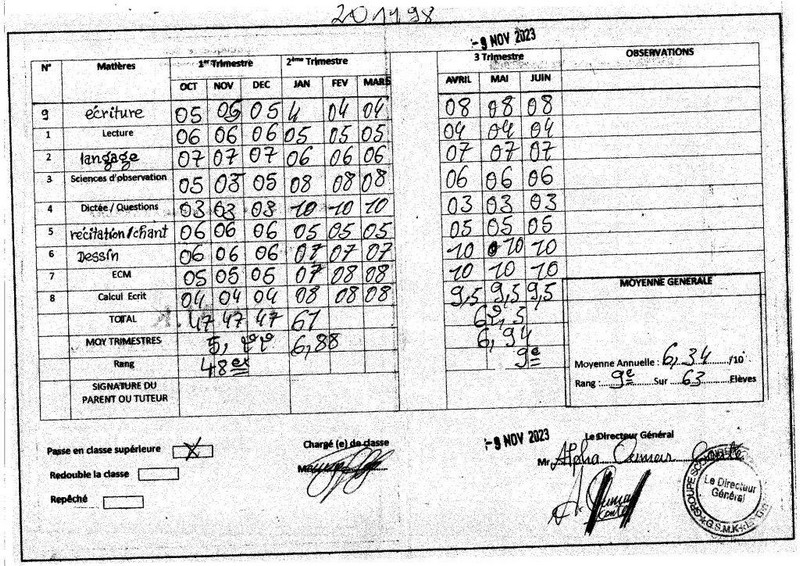 201498
-9 NOV 2023
N° Matières 1er Trimestre 2ème Trimestre 3 Trimestre OBSERVATIONS
OCT NOV DEC JAN FEV MARS AVRIL MAI JUIN
9 écriture 05 05 05 4 04 04 08 08 08
1 Lecture 06 06 06 05 05 05 04 04 04
2 langage 07 07 07 06 06 06 07 07 07
3 Sciences d'observation 05 05 08 08 08 06 06 06
4 Dictée / Questions 03 03 03 10 10 10 03 03 03
5 récitation/chant 06 06 06 05 05 05 05 05 05
6 Dessin 06 06 06 07 07 07 10 10 10
7 ECM 05 05 05 07 08 08 10 10 10
8 Calcul Ecrit 04 04 04 08 08 08 9,5 9,5 9,5
TOTAL 47 47 47 61 62,5
MOY TRIMESTRES 5, 6,88 6,94
Rang 48ex 9e
SIGNATURE DU PARENT OU TUTEUR
MOYENNE GENERALE
Moyenne Annuelle : 6,34 /10
Rang : 9e Sur 63 Elèves
Passe en classe supérieure X
Redouble la classe
Repêché
Chargé (e) de classe
-9 NOV 2023
Le Directeur Général
Mr Alpha Oumar Conte
Le Directeur Général
G.S.M.K